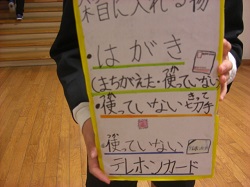 箱に入れる物
・はがき
(まちがえた・使っていない
・使っていない切手
きって
・使っていない
テレホンカード